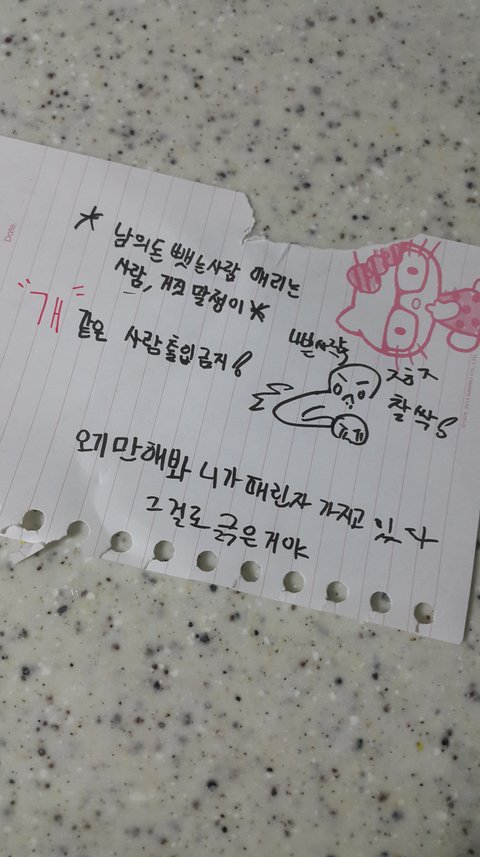 Date.
* 남의돈 뺏는사람 때리는
사람, 거짓 말쟁이*
"개" 같은 사람출입금지!
나쁜사람
찰싹!
오기만해봐 니가 때린자 가지고 있다
그걸로 긁은거야